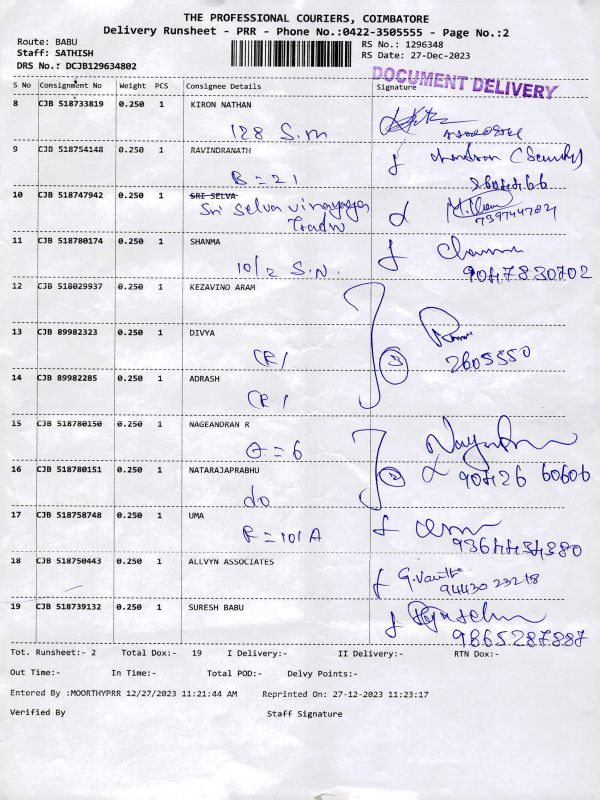 THE PROFESSIONAL COURIERS, COIMBATORE
Delivery Runsheet - PRR - Phone No.:0422-3505555 - Page No.:2
Route: BABU
RS No.: 1296348
Staff: SATHISH
RS Date: 27-Dec-2023
DRS No.: DCJB129634802
DOCUMENT DELIVERY
S No Consignment No Weight PCS Consignee Details Signature
8 CJB 518733819 0.250 1 KIRON NATHAN
128 S.M
9 CJB 518754148 0.250 1 RAVINDRANATH
Chandran (Security)
B = 21
2604466
10 CJB 518747942 0.250 1 SRI SELVA
Sri Selva Vinayaga
11 CJB 518780174 0.250 1 SHANMA
10/2 S.N.
9047830702
12 CJB 518029937 0.250 1 KEZAVINO ARAM
13 CJB 89982323 0.250 1 DIVYA
CR1
3
2605550
14 CJB 89982285 0.250 1 ADRASH
CR1
15 CJB 518780150 0.250 1 NAGEANDRAN R
16 CJB 518780151 0.250 1 NATARAJAPRABHU
2
90426 60606
do
17 CJB 518758748 0.250 1 UMA
101 A
9364434380
18 CJB 518750443 0.250 1 ALLVYN ASSOCIATES
94430 23218
19 CJB 518739132 0.250 1 SURESH BABU
9865287887
Tot. Runsheet:- 2 Total Dox:- 19 I Delivery:- II Delivery:- RTN Dox:-
Out Time:- In Time:- Total POD:- Delvy Points:-
Entered By :MOORTHYPRR 12/27/2023 11:21:44 AM Reprinted On: 27-12-2023 11:23:17
Verified By Staff Signature